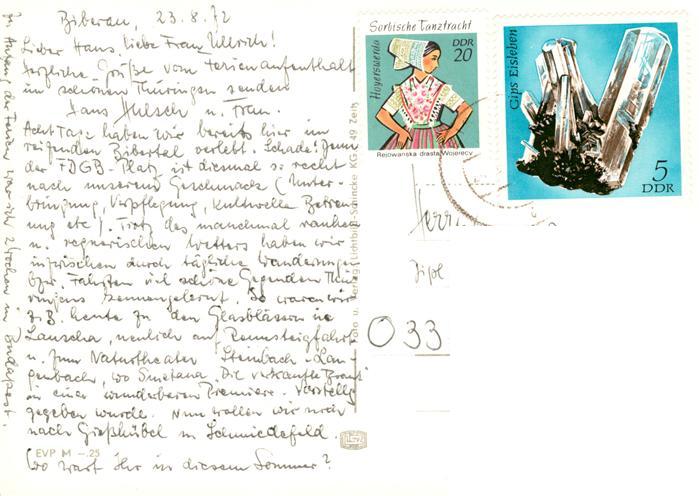 Biberau, 23.8.72
Lieber Hans, liebe Frau Ullrich!
Herzliche Grüße vom Ferienaufenthalt
im schönen Thüringen senden
Hans Hülsch u. Frau.
Acht Tage haben wir bereits hier im
reifenden Bibertal verlebt. Schade! Denn
der FDGB-Platz ist diesmal so recht
nach unserem Geschmack (Unter-
bringung, Verpflegung, kulturelle Betreu-
ung etc.). Trotz des manchmal rauhen
u. regnerischen Wetters haben wir
inzwischen durch tägliche Wanderungen
bzw. Fahrten viel schöne Gegenden Thü-
ringens kennengelernt. So waren wir
z.B. heute zu den Glasbläsern in
Lauscha, neulich auf Rennsteigfahrt
u. zum Naturtheater Steinbach-Lan-
genbach, wo Smetana "Die verkaufte Braut"
in einer wunderbaren Premiere-Vorstellg
gegeben wurde. Nun wollen wir noch
nach Gießhübel u. Schmiedefeld.
Wo wart Ihr in diesem Sommer?
Zu Anfang der Ferien war ich 2 Wochen in Budapest.
EVP M -.25
Foto u. Verlag Lichtbild-Schincke KG 49 Zeitz
Sorbische Tanztracht
Hoyerswerda
DDR
20
Rejowanska drasta Wojerecy
Gips Eisleben
5
DDR
Herrn
Dipl
O 33